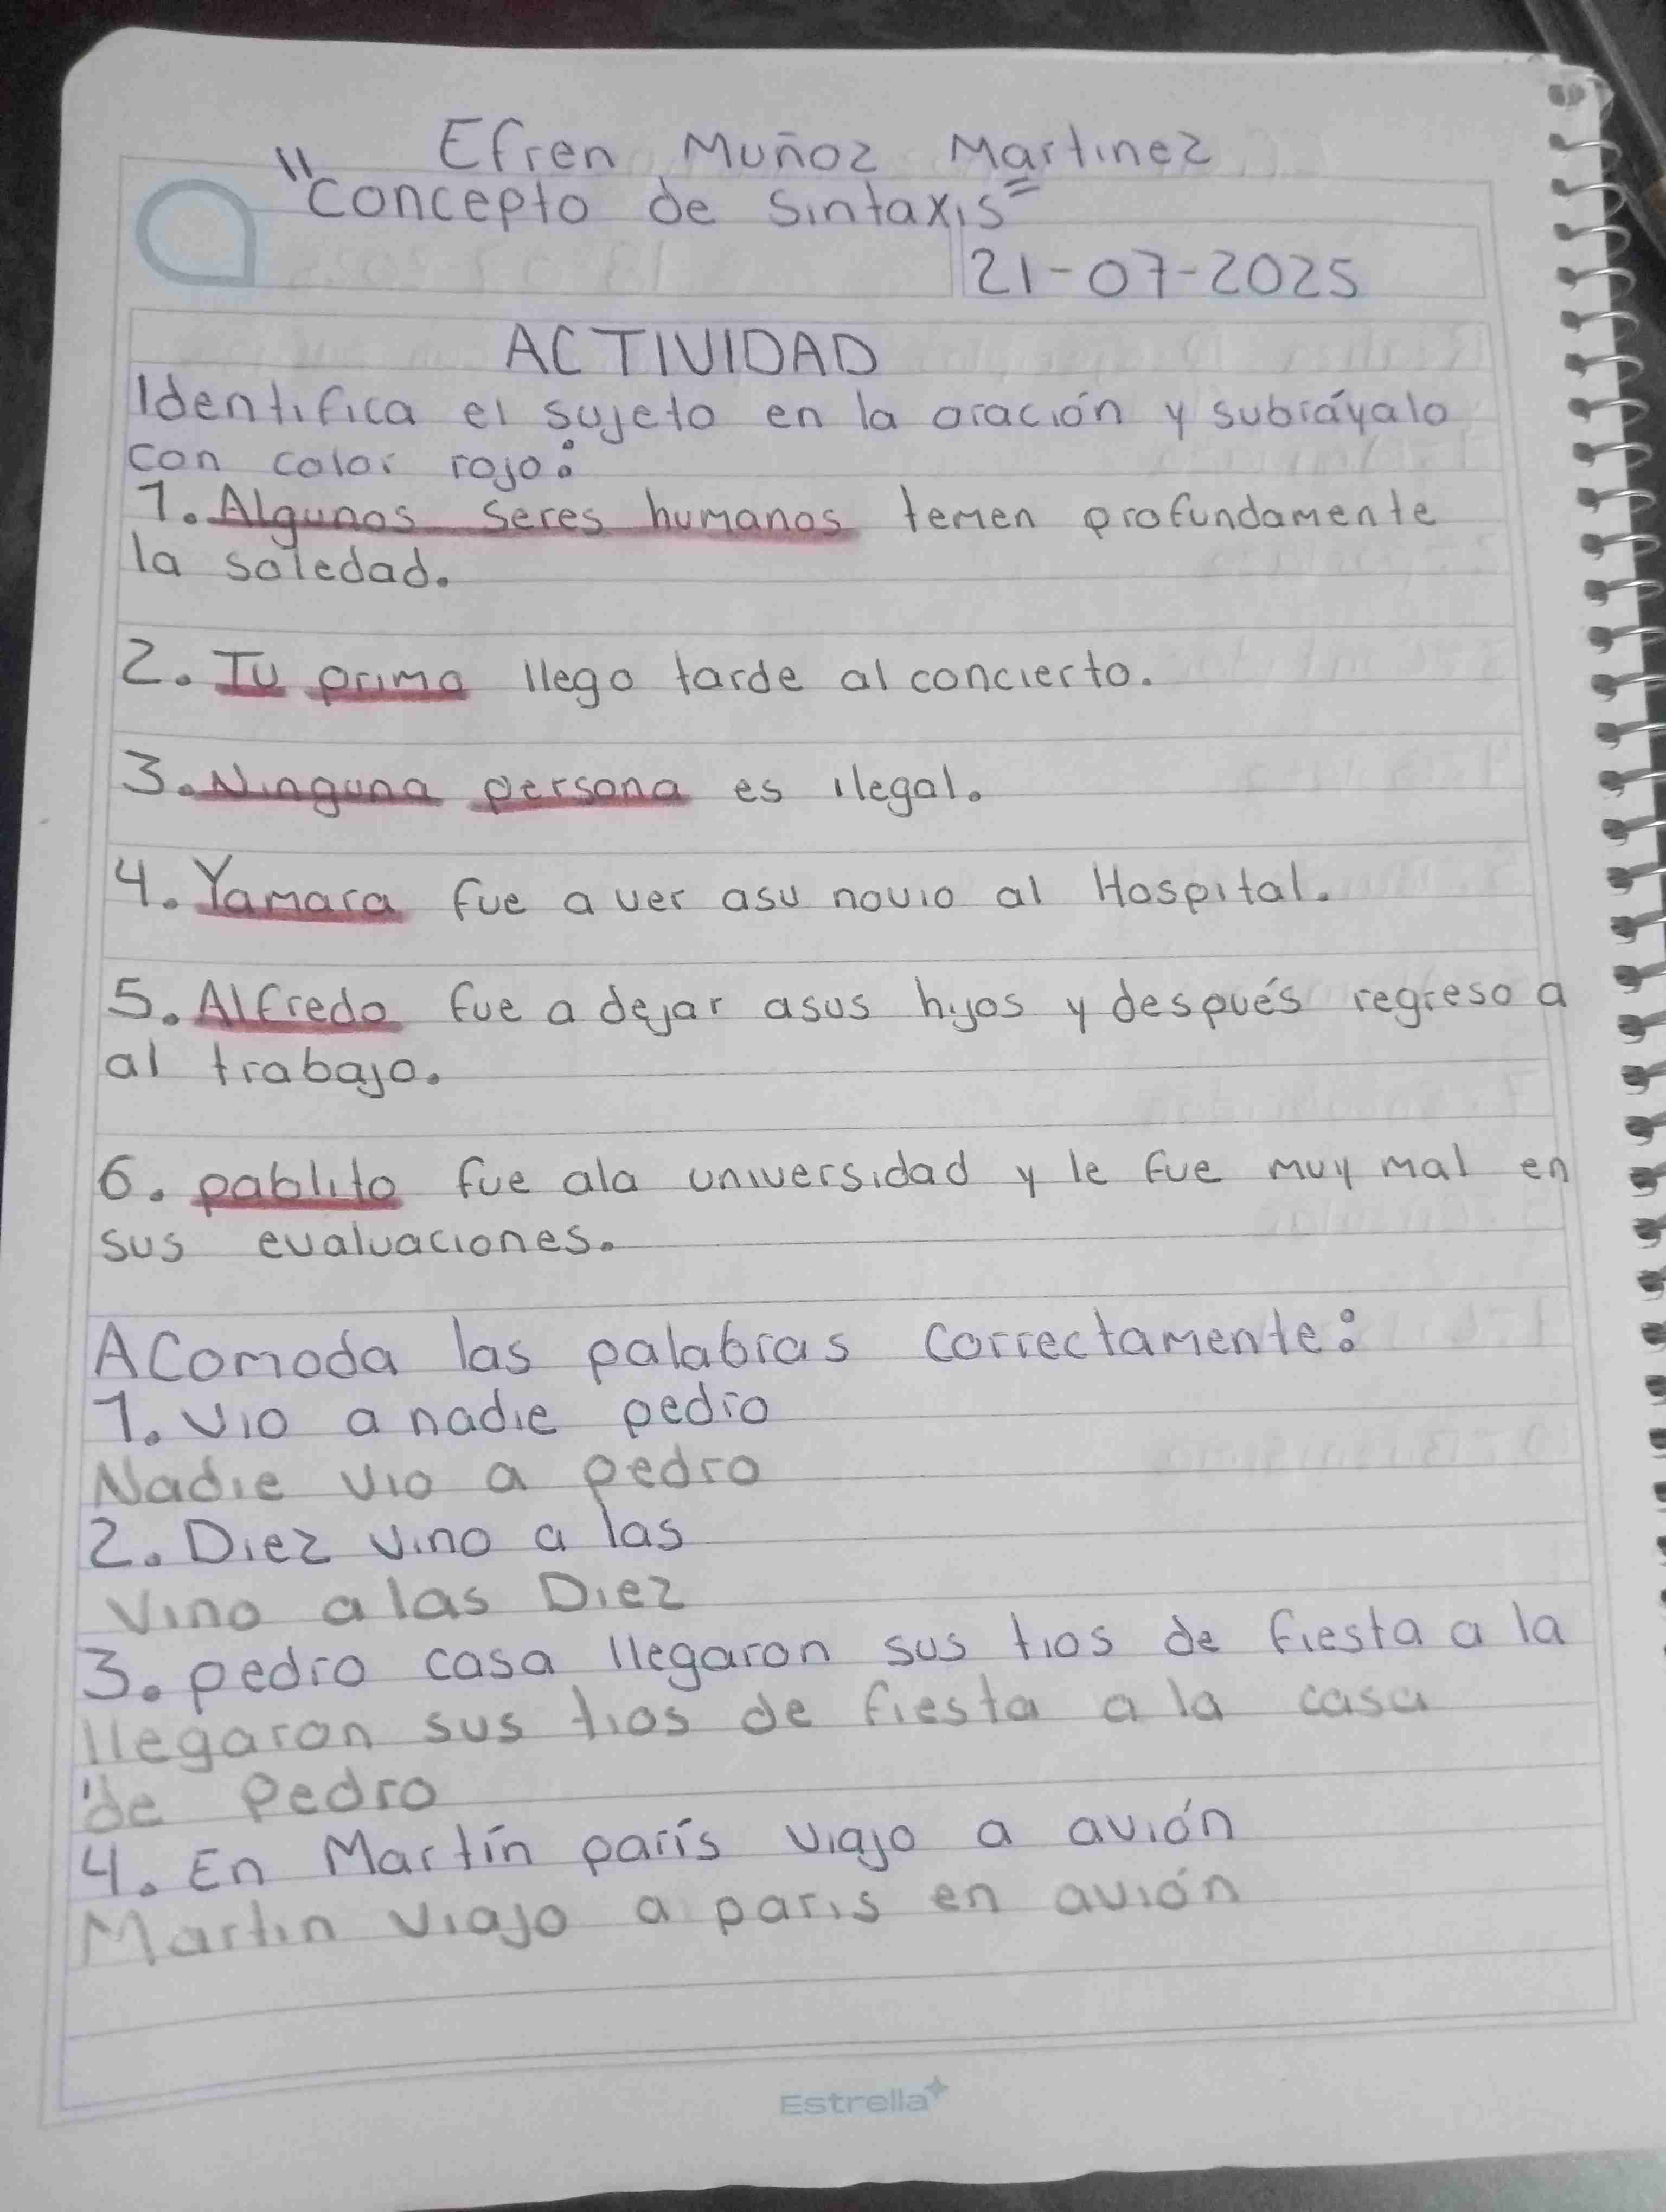 Efren Muñoz Martinez
"Concepto de Sintaxis"
21-07-2025
ACTIVIDAD
Identifica el sujeto en la oración y subráyalo
con color rojo:
1. Algunos seres humanos temen profundamente
la soledad.
2. Tu prima llego tarde al concierto.
3. Ninguna persona es ilegal.
4. Yamara fue a ver asu novio al Hospital.
5. Alfredo fue a dejar asus hijos y después regreso a
al trabajo.
6. pablito fue ala universidad y le fue muy mal en
sus evaluaciones.
Acomoda las palabras correctamente:
1. vio a nadie pedro
Nadie vio a pedro
2. Diez vino a las
Vino a las Diez
3. pedro casa llegaron sus tios de fiesta a la
llegaron sus tios de fiesta a la casa
de Pedro
4. En Martín parís viajo a avión
Martin viajo a paris en avión
Estrella